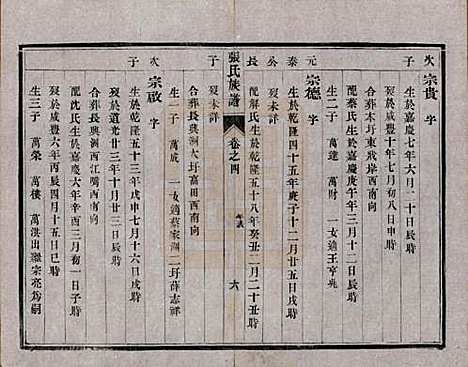 次 宗貴 字
子 生於嘉慶七年六月二十日辰時
歿於咸豐十年七月初八日申時
合葬木圩東戤岸西南向
配蔡氏生於嘉慶庚午年三月十二日辰時
生二子 萬達 萬財 一女適王亨堯
元 宗德 字
泰 生於乾隆四十五年庚子十二月廿五日戌時
公 歿未詳
長 配解氏生於乾隆五十八年癸丑二月二十丑時
子 歿未詳
合葬長興洲大圩富田西南向
生一子 萬成 一女適蔡家洲二圩薛志祥
張氏族譜
卷之四
六
次 宗啟 字
子 生於乾隆五十三年戊申七月十六日戌時
歿於道光廿三年十月廿三日辰時
合葬長興洲西江嘴西南向
配沈氏生於嘉慶六年辛酉三月初一日子時
歿於咸豐六年丙辰四月十五日巳時
生三子 萬榮 萬樓 萬洪出繼宗亮為嗣